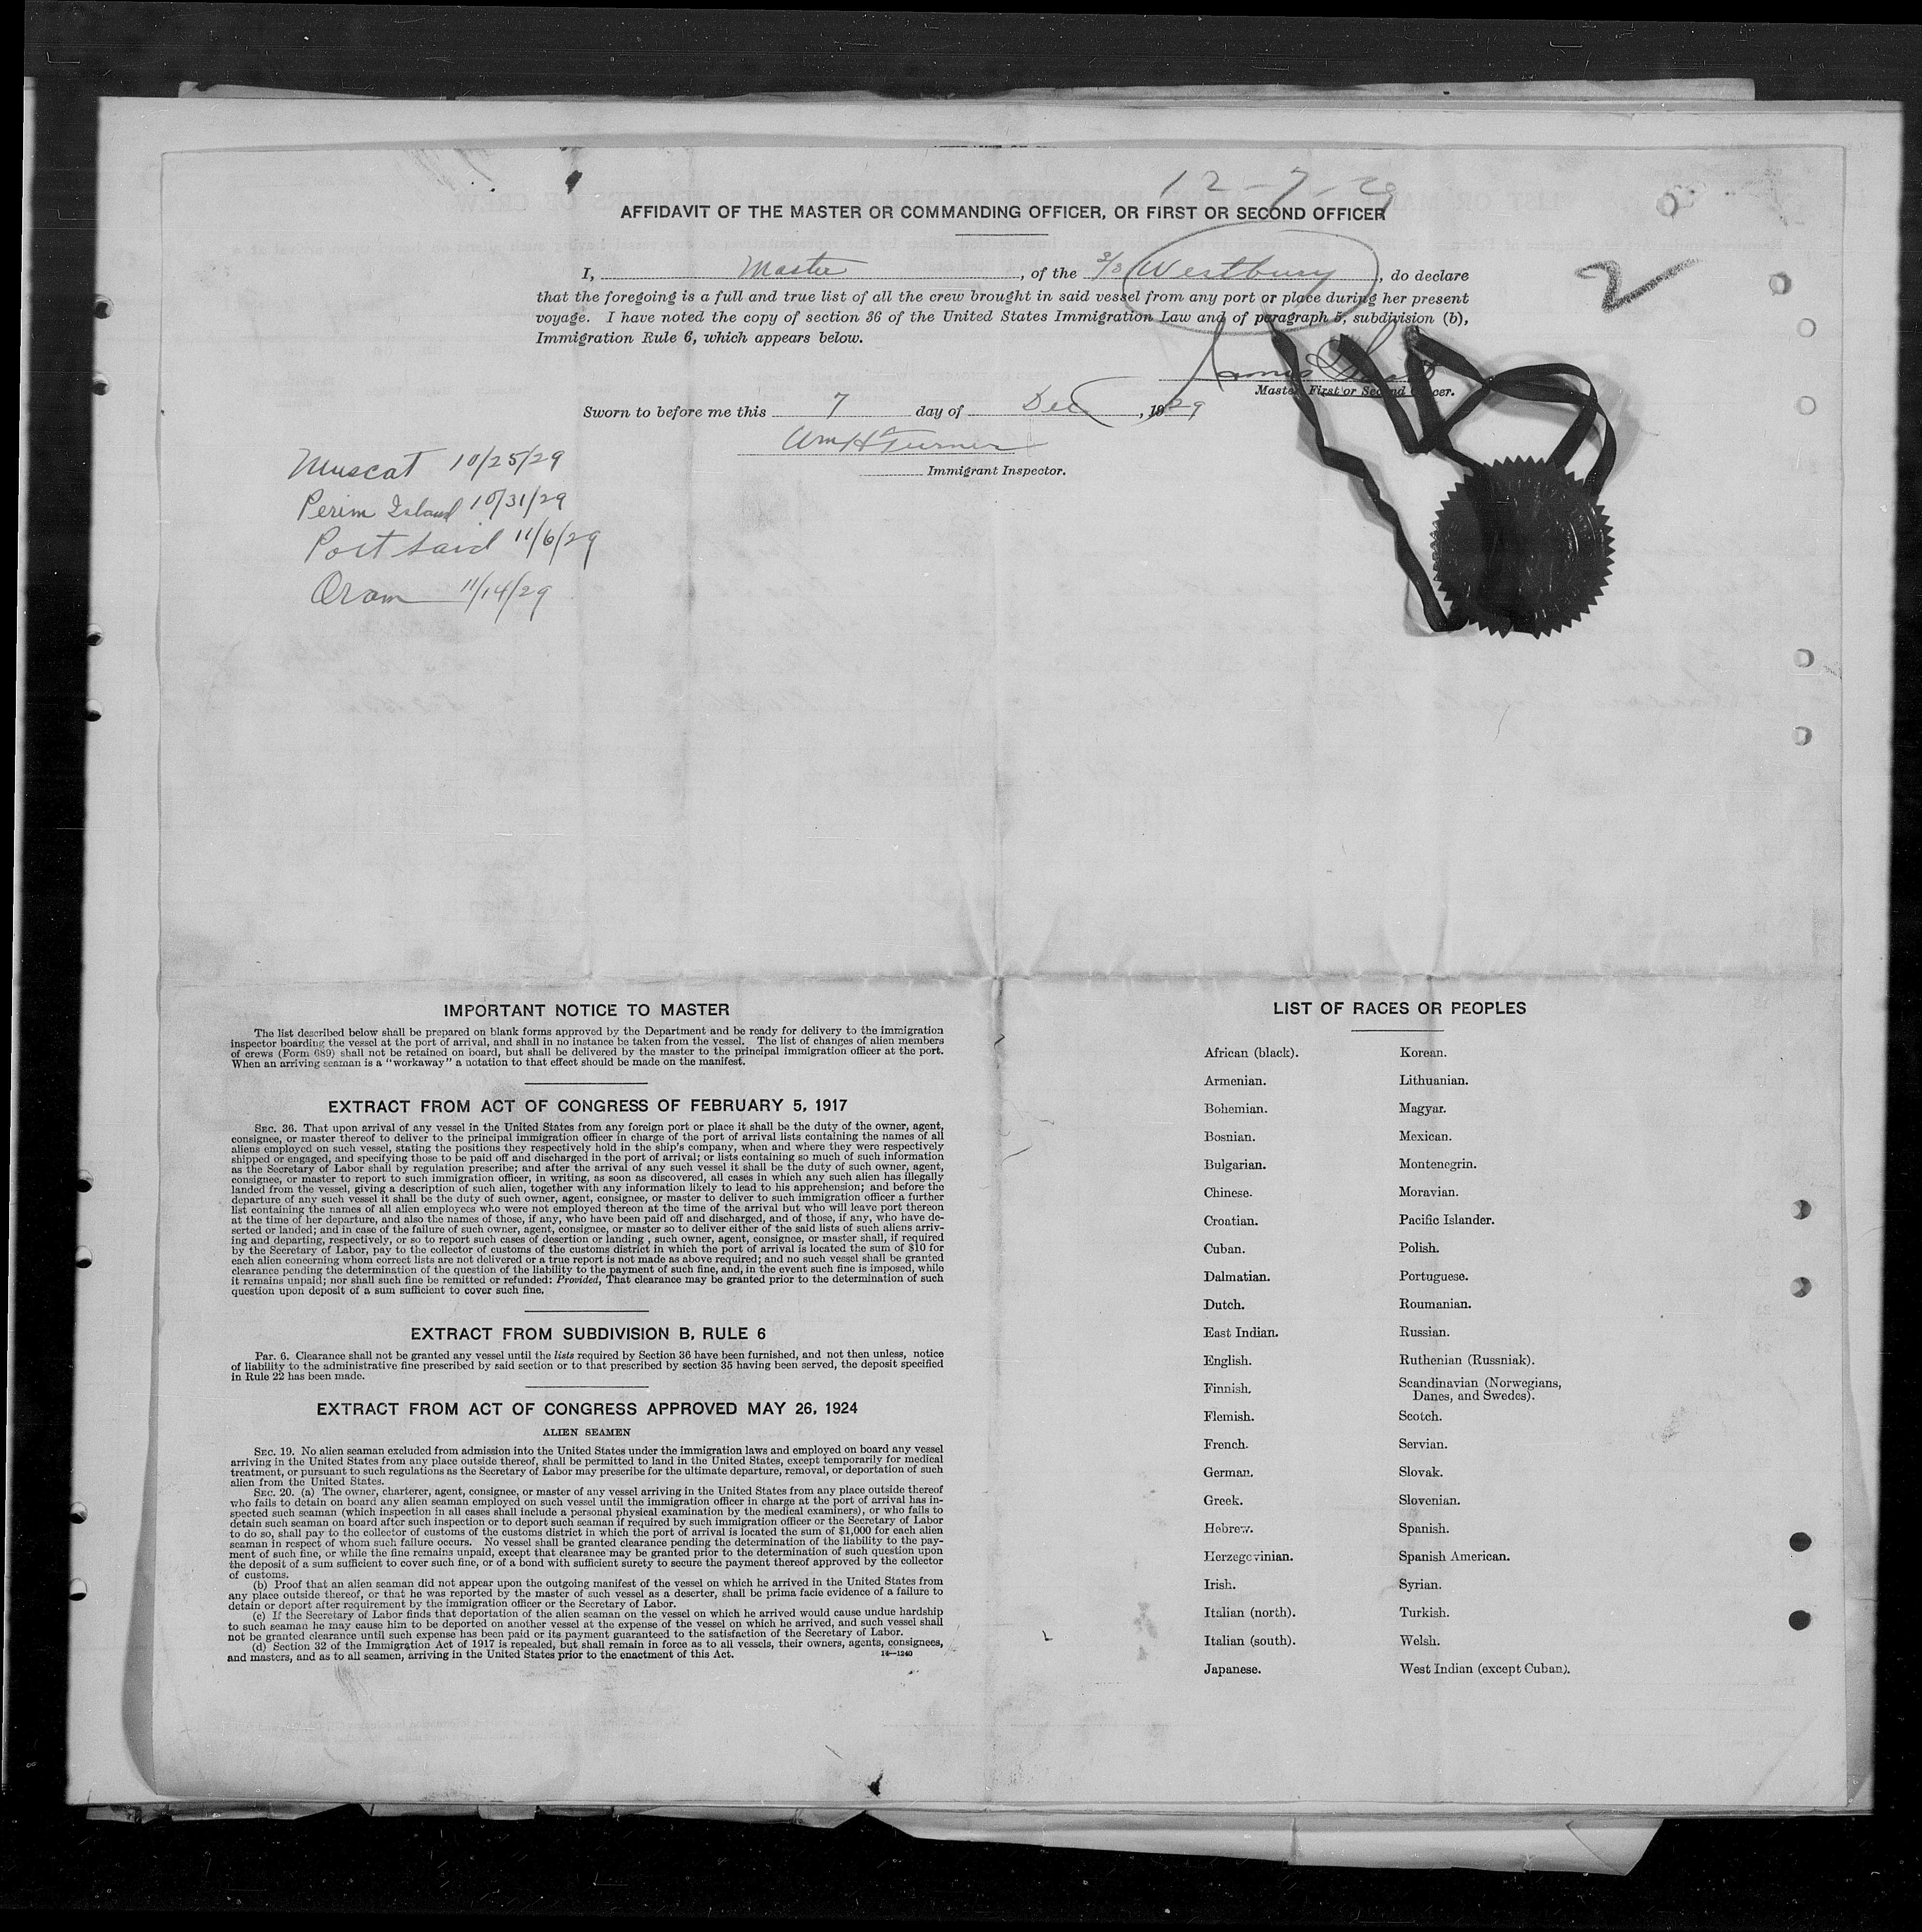 12-7-29
AFFIDAVIT OF THE MASTER OR COMMANDING OFFICER, OR FIRST OR SECOND OFFICER
I, Master, of the S/S Westbury, do declare
that the foregoing is a full and true list of all the crew brought in said vessel from any port or place during her present
voyage. I have noted the copy of section 36 of the United States Immigration Law and of paragraph 5, subdivision (b),
Immigration Rule 6, which appears below.
2
James
Master, First or Second Officer.
Sworn to before me this 7 day of Dec, 1929
Wm H Turner
Immigrant Inspector.
Muscat 10/25/29
Perim Island 10/31/29
Port Said 11/6/29
Oran 11/14/29
IMPORTANT NOTICE TO MASTER
The list described below shall be prepared on blank forms approved by the Department and be ready for delivery to the immigration
inspector boarding the vessel at the port of arrival, and shall in no instance be taken from the vessel. The list of changes of alien members
of crews (Form 689) shall not be retained on board, but shall be delivered by the master to the principal immigration officer at the port.
When an arriving seaman is a "workaway" a notation to that effect should be made on the manifest.
EXTRACT FROM ACT OF CONGRESS OF FEBRUARY 5, 1917
SEC. 36. That upon arrival of any vessel in the United States from any foreign port or place it shall be the duty of the owner, agent,
consignee, or master thereof to deliver to the principal immigration officer in charge of the port of arrival lists containing the names of all
aliens employed on such vessel, stating the positions they respectively hold in the ship's company, when and where they were respectively
shipped or engaged, and specifying those to be paid off and discharged in the port of arrival; or lists containing so much of such information
as the Secretary of Labor shall by regulation prescribe; and after the arrival of any such vessel it shall be the duty of such owner, agent,
consignee, or master to report to such immigration officer, in writing, as soon as discovered, all cases in which any such alien has illegally
landed from the vessel, giving a description of such alien, together with any information likely to lead to his apprehension; and before the
departure of any such vessel it shall be the duty of such owner, agent, consignee, or master to deliver to such immigration officer a further
list containing the names of all alien employees who were not employed thereon at the time of the arrival but who will leave port thereon
at the time of her departure, and also the names of those, if any, who have been paid off and discharged, and of those, if any, who have de-
serted or landed; and in case of the failure of such owner, agent, consignee, or master so to deliver either of the said lists of such aliens arriv-
ing and departing, respectively, or so to report such cases of desertion or landing , such owner, agent, consignee, or master shall, if required
by the Secretary of Labor, pay to the collector of customs of the customs district in which the port of arrival is located the sum of $10 for
each alien concerning whom correct lists are not delivered or a true report is not made as above required; and no such vessel shall be granted
clearance pending the determination of the question of the liability to the payment of such fine, and, in the event such fine is imposed, while
it remains unpaid; nor shall such fine be remitted or refunded: Provided, That clearance may be granted prior to the determination of such
question upon deposit of a sum sufficient to cover such fine.
EXTRACT FROM SUBDIVISION B, RULE 6
PAR. 6. Clearance shall not be granted any vessel until the lists required by Section 36 have been furnished, and not then unless, notice
of liability to the administrative fine prescribed by said section or to that prescribed by section 35 having been served, the deposit specified
in Rule 22 has been made.
EXTRACT FROM ACT OF CONGRESS APPROVED MAY 26, 1924
ALIEN SEAMEN
SEC. 19. No alien seaman excluded from admission into the United States under the immigration laws and employed on board any vessel
arriving in the United States from any place outside thereof, shall be permitted to land in the United States, except temporarily for medical
treatment, or pursuant to such regulations as the Secretary of Labor may prescribe for the ultimate departure, removal, or deportation of such
alien from the United States.
SEC. 20. (a) The owner, charterer, agent, consignee, or master of any vessel arriving in the United States from any place outside thereof
who fails to detain on board any alien seaman employed on such vessel until the immigration officer in charge at the port of arrival has in-
spected such seaman (which inspection in all cases shall include a personal physical examination by the medical examiners), or who fails to
detain such seaman on board after such inspection or to deport such seaman if required by such immigration officer or the Secretary of Labor
to do so, shall pay to the collector of customs of the customs district in which the port of arrival is located the sum of $1,000 for each alien
seaman in respect of whom such failure occurs. No vessel shall be granted clearance pending the determination of the liability to the pay-
ment of such fine, or while the fine remains unpaid, except that clearance may be granted prior to the determination of such question upon
the deposit of a sum sufficient to cover such fine, or of a bond with sufficient surety to secure the payment thereof approved by the collector
of customs.
(b) Proof that an alien seaman did not appear upon the outgoing manifest of the vessel on which he arrived in the United States from
any place outside thereof, or that he was reported by the master of such vessel as a deserter, shall be prima facie evidence of a failure to
detain or deport after requirement by the immigration officer or the Secretary of Labor.
(c) If the Secretary of Labor finds that deportation of the alien seaman on the vessel on which he arrived would cause undue hardship
to such seaman he may cause him to be deported on another vessel at the expense of the vessel on which he arrived, and such vessel shall
not be granted clearance until such expense has been paid or its payment guaranteed to the satisfaction of the Secretary of Labor.
(d) Section 32 of the Immigration Act of 1917 is repealed, but shall remain in force as to all vessels, their owners, agents, consignees,
and masters, and as to all seamen, arriving in the United States prior to the enactment of this Act.
14—1240
LIST OF RACES OR PEOPLES
African (black).
Armenian.
Bohemian.
Bosnian.
Bulgarian.
Chinese.
Croatian.
Cuban.
Dalmatian.
Dutch.
East Indian.
English.
Finnish.
Flemish.
French.
German.
Greek.
Hebrew.
Herzegovinian.
Irish.
Italian (north).
Italian (south).
Japanese.
Korean.
Lithuanian.
Magyar.
Mexican.
Montenegrin.
Moravian.
Pacific Islander.
Polish.
Portuguese.
Roumanian.
Russian.
Ruthenian (Russniak).
Scandinavian (Norwegians,
Danes, and Swedes).
Scotch.
Servian.
Slovak.
Slovenian.
Spanish.
Spanish American.
Syrian.
Turkish.
Welsh.
West Indian (except Cuban).